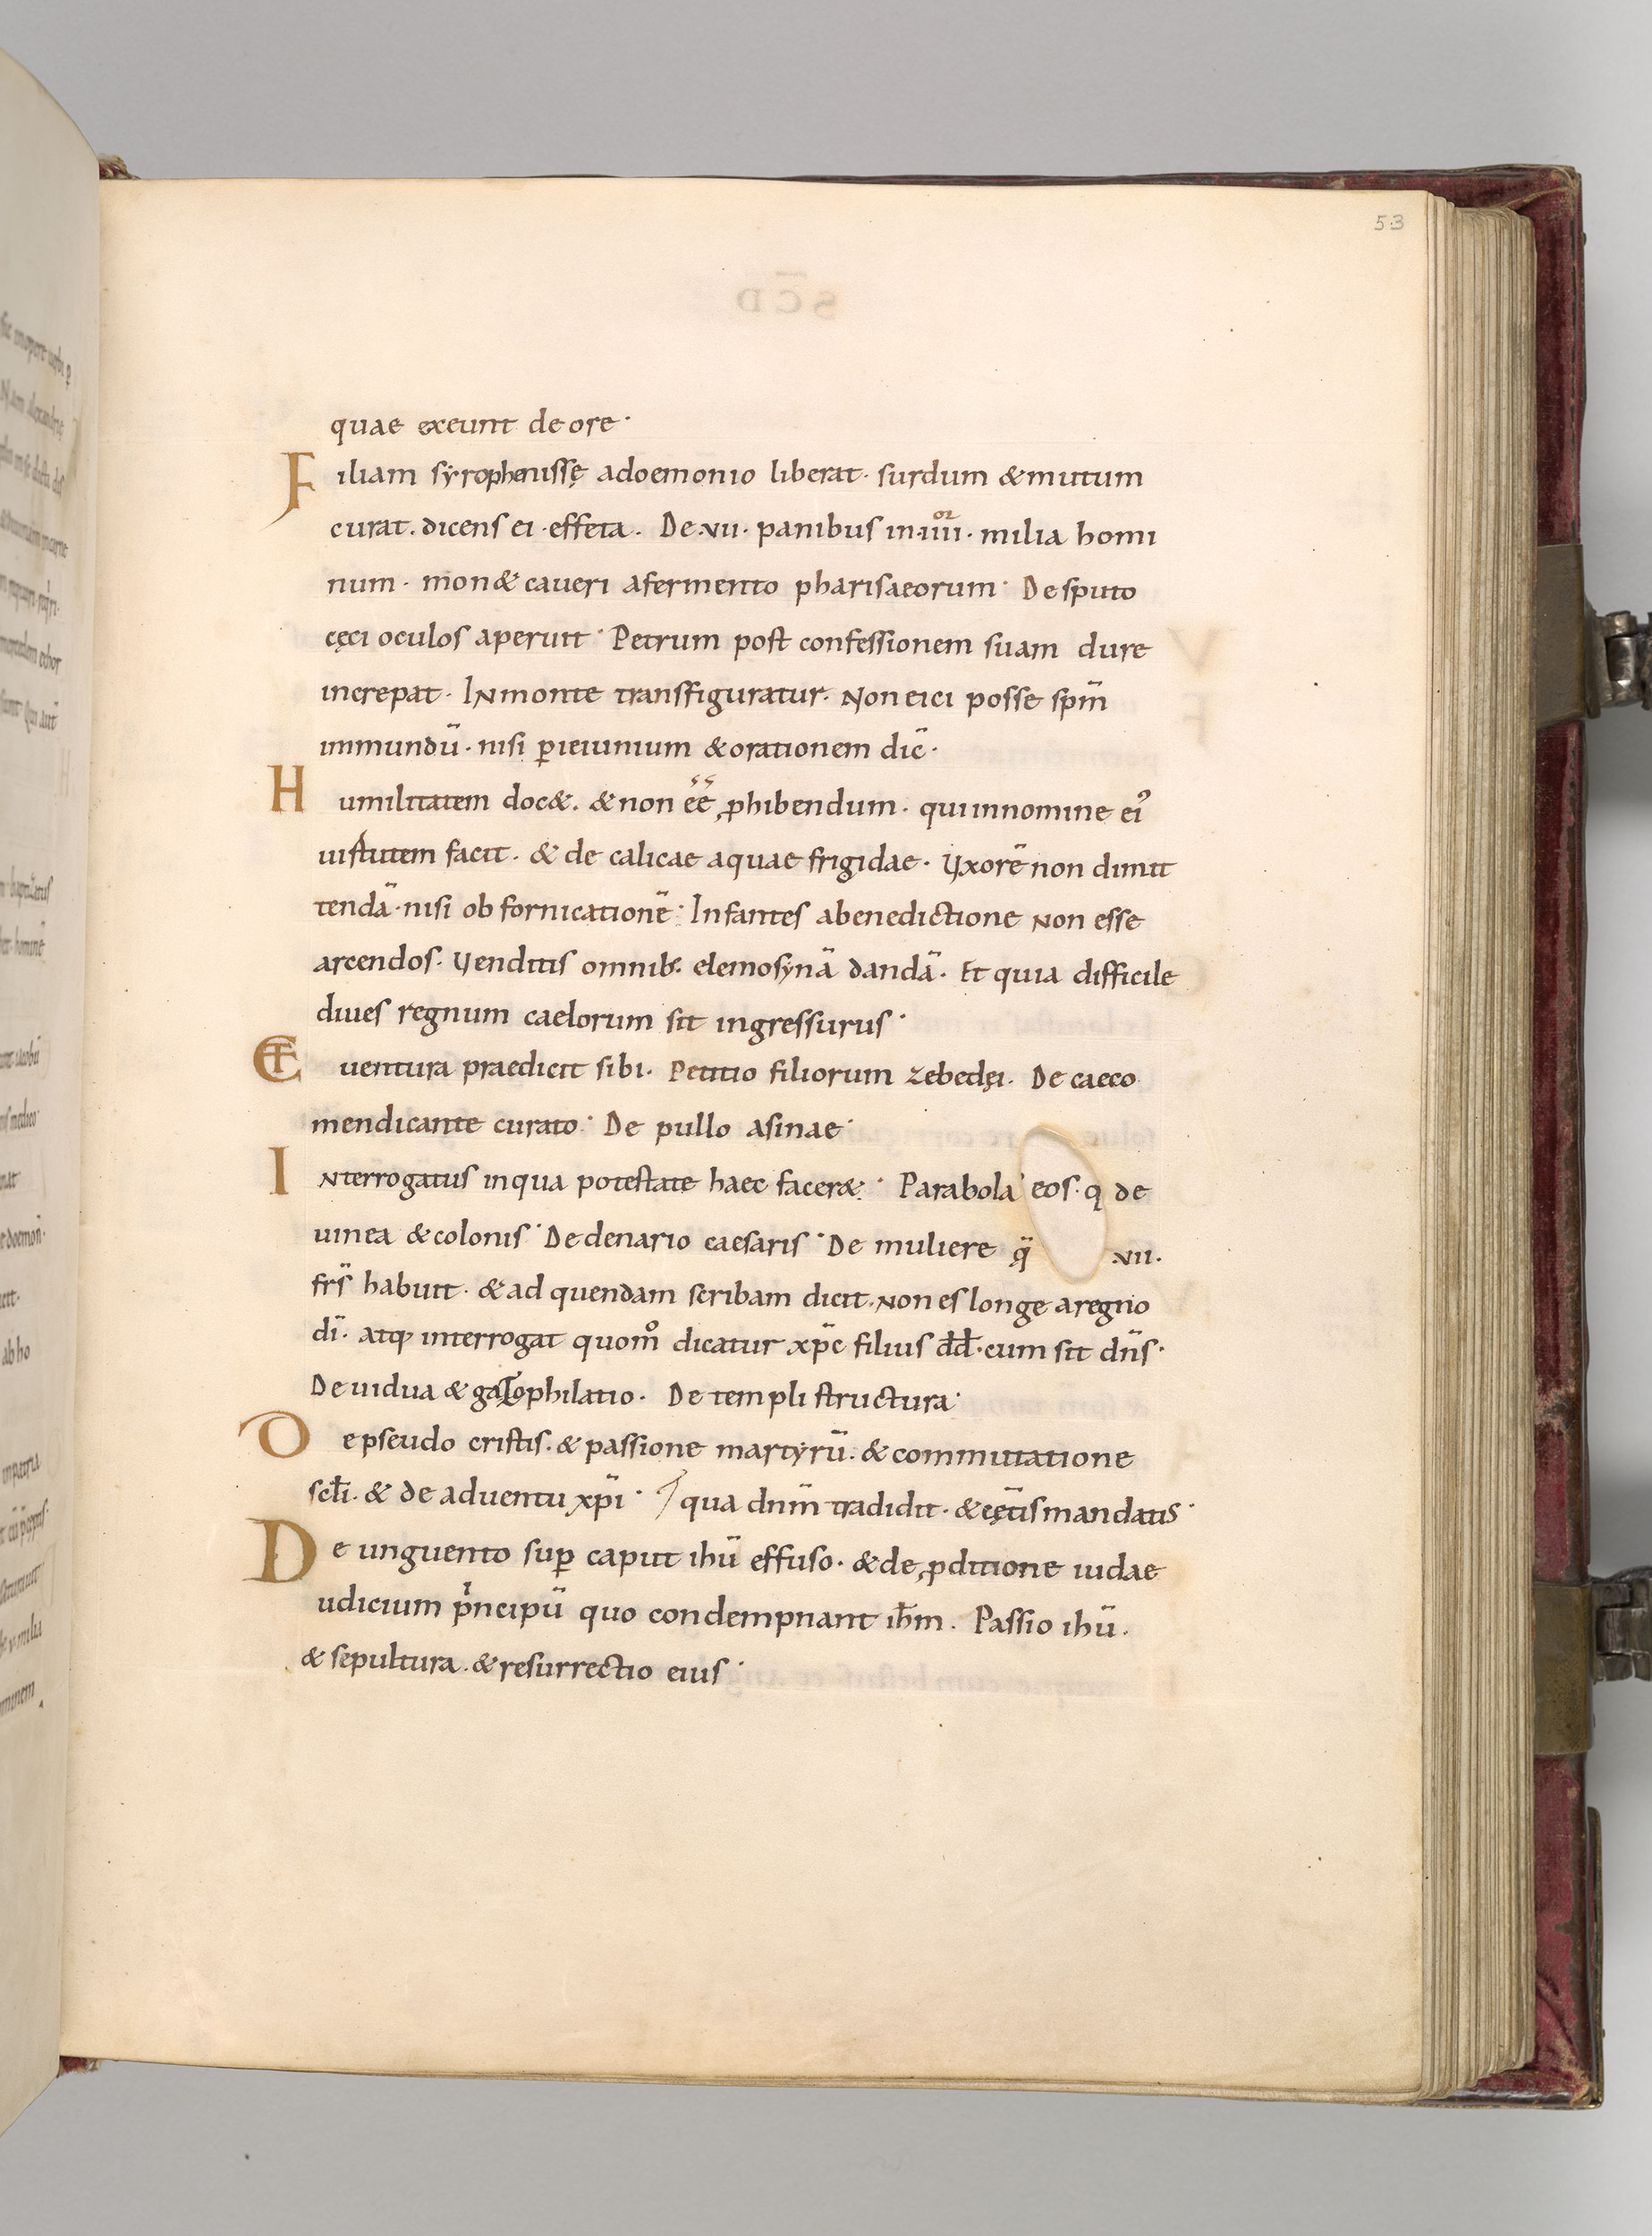 53
quae exeunt de ore·
Filiam syrophenissę adoemonio liberat· surdum &mutum
curat. dicens ei·effeta. De·vii·panibus in·iiii·milia homi
num· mon& caueri afermento pharisaeorum· Desputo
cęci oculos aperuit· Petrum post confessionem suam dure
increpat· INmonte transfiguratur· Non eici posse spm̄
immundū·nisi ꝑieiunium &orationem dic̄·
Humilitatem doc&. &non ēē ꝓhibendum· quiinnomine ei᾽
uirtutem facit· & de calicae aquae frigidae· Uxorē non dimit
tendā·nisi ob fornicationē· Infantes abenedictione non esse
arcendos· Uenditis omnib; elemosynā dandā· Et quia difficile
diues regnum caelorum sit ingressurus·
ET uentura praedicit sibi· Petitio filiorum zebedęi· De caeco
mendicante curato· De pullo asinae·
INterrogatus inqua potestate haec facer&· Parabola eos·q de
uinea &colonis· Dedenario caesaris· De muliere q̄ vii·
frs̄ habuit· &ad quendam scribam dicit·Non es longe aregno
dī· atq; interrogat quom̊ dicatur xp̄c filius dd̄·cum sit dn̄s·
De uidua & gazophilatio· De templi structura·
De pseudo cristis·&passione martyrū·&commutatione
scl̄i·& de aduentu xp̄i· / qua dnm̄ tradidit·&cęt̄is mandatis·
De unguento suꝑ caput ihū effuso· &de ꝓditione iudae
udicium pⁱncipū quo condempnant ih̄m. Passio ihū·
&sepultura·&resurrectio eius·